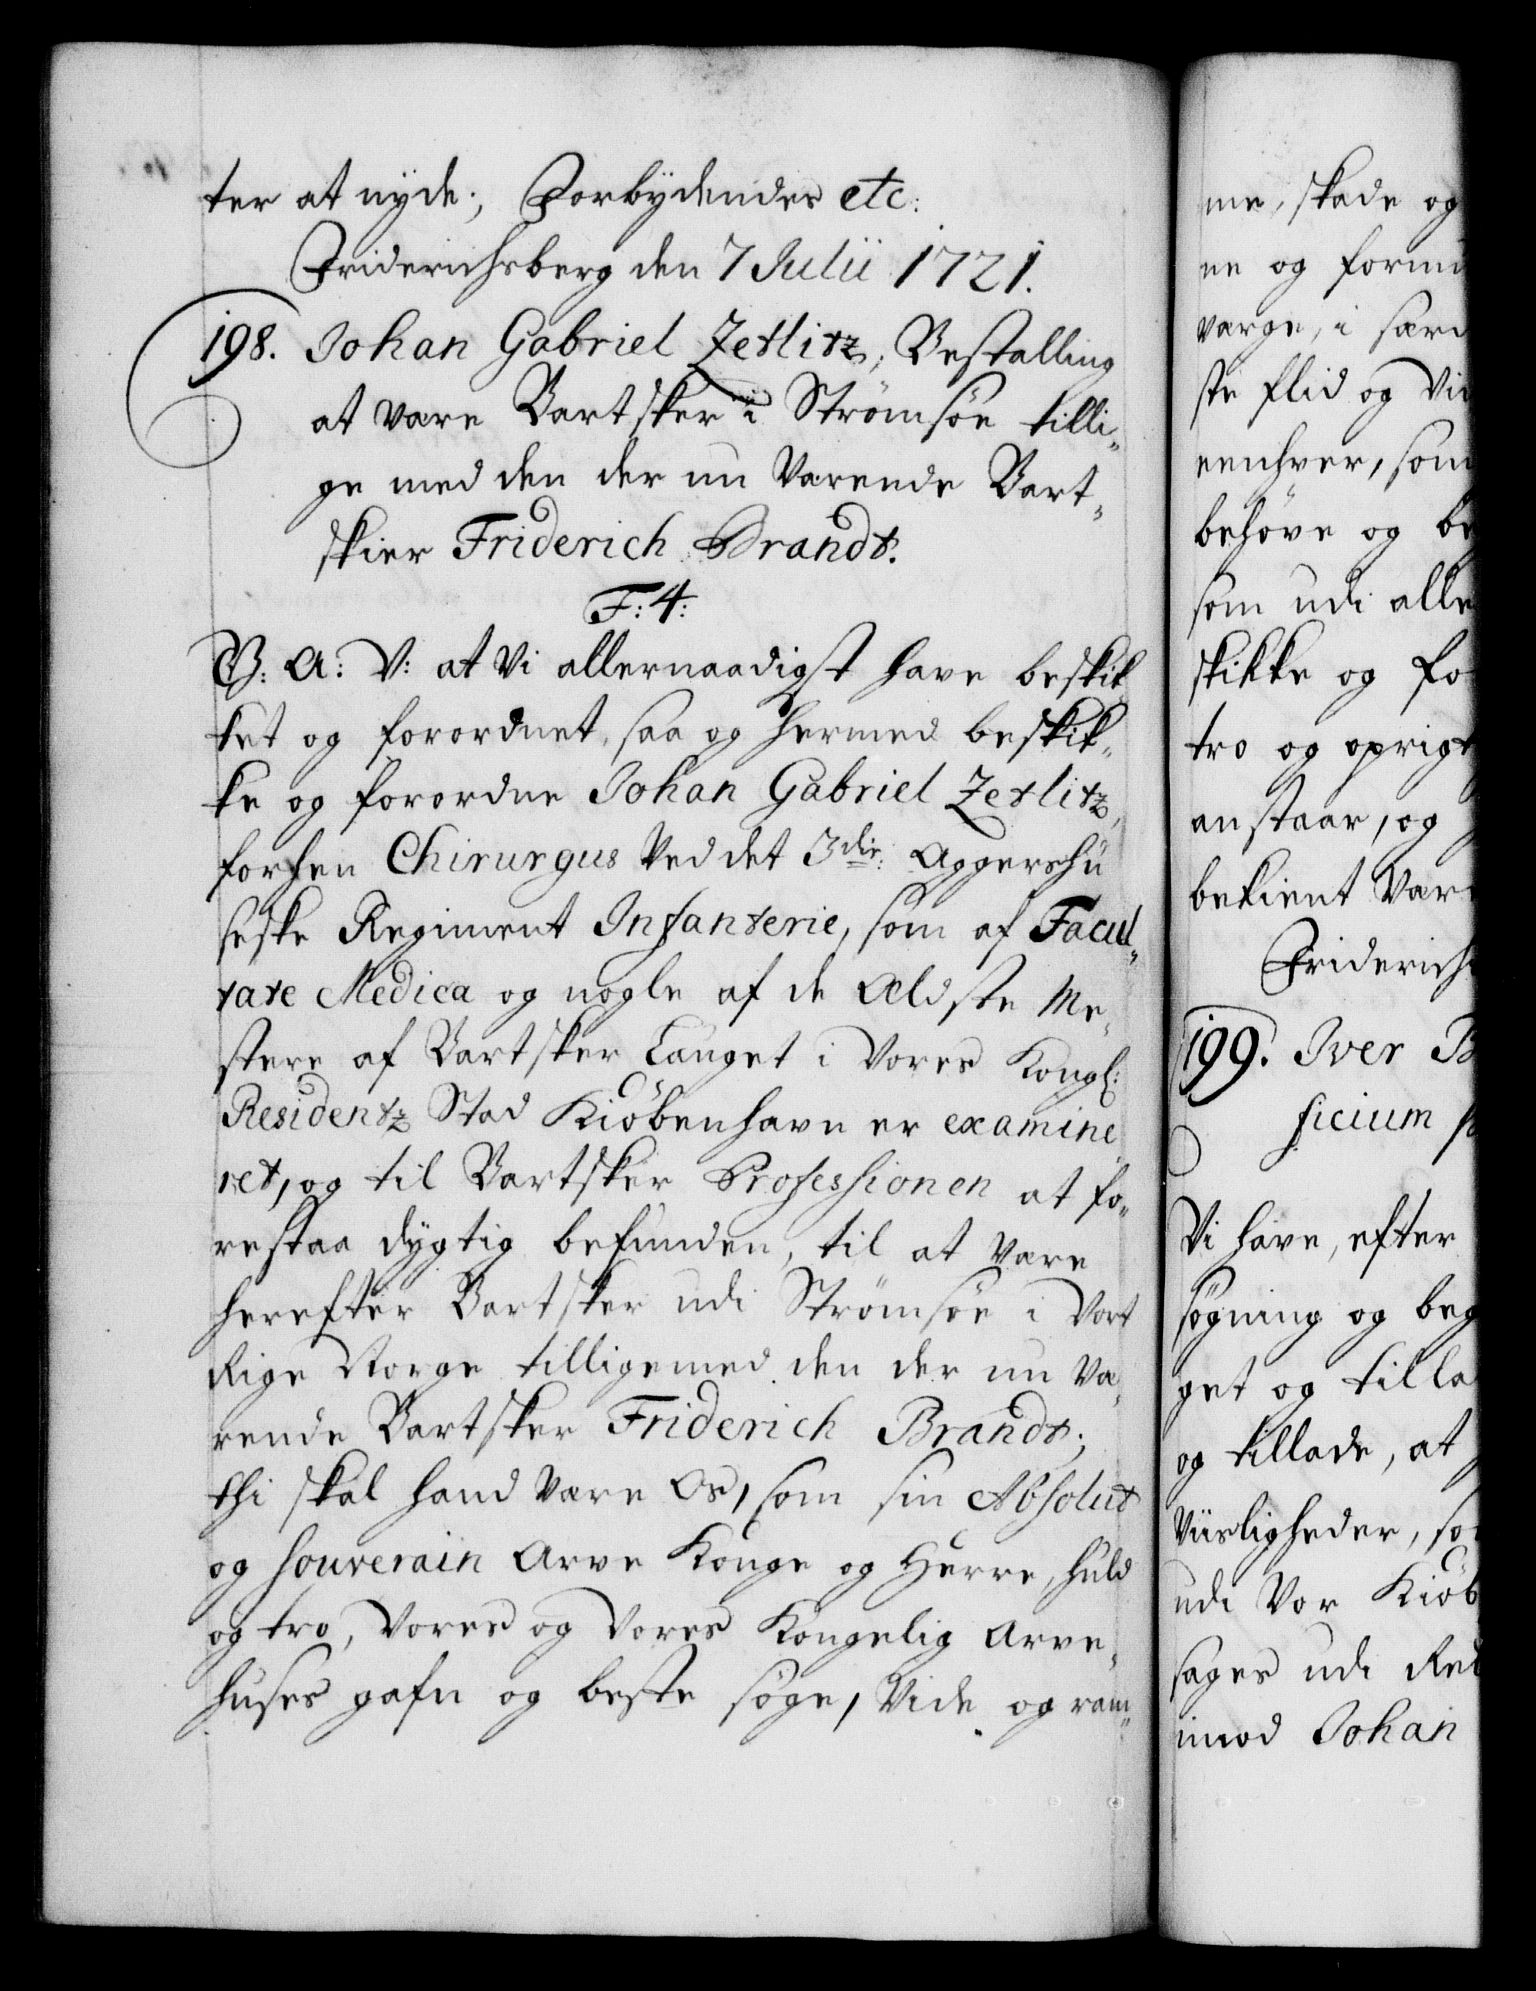 ter at nyde; Forbydendes etc:
Friderichsberg den 7 Julii 1721.
198. Johan Gabriel Zetlitz, Bestalling
at være Bartsker i Strømsöe tilli„
ge med den der nu værende Bart„
skier Friderich Brandt.
F: 4:
V: A: V: at Vi allernaadigst have beskik„
ket og forordnet, saa og hermed beskik„
ke og forordne Johan Gabriel Zetlitz,
forhen Chirurgus ved det 3die: Aggershu
siske Regiment Infanterie, som af Facul„
tate Medica og nogle af de Ældste Me„
stere af Bartsker Lauget i Vores Kongl:
Residentz Stad Kiöbenhavn er examine„
ret, og til Bartsker Professionen at fo„
restaa dygtig befunden, til at være
herefter Bartsker udi Strömsöe i Vort
Rige Norge tilligemed den der nu væ„
rende Bartsker Friderich Brandt;
thi skal hand være Os, som sin Absolut
og Souverain Arve Konge og Herre, huld
og tro, Vores og Vores Kongelig Arve„
huses gafn og beste søge, Vide og ram„
me, skade og
ne og formu
værge, i sær
ste flid og Vi
eenhver, som
behöve og be
som udi alle
skikke og fo
tro og oprigt
anstaar, og
bekient Vær
Friderichs
199. Iver B
ficium
Vi have, efter
søgning og beg
get og tilla
og tillade, at
Viisligheder, so
udi Vor Kiöb
sages udi Re
imod Johan